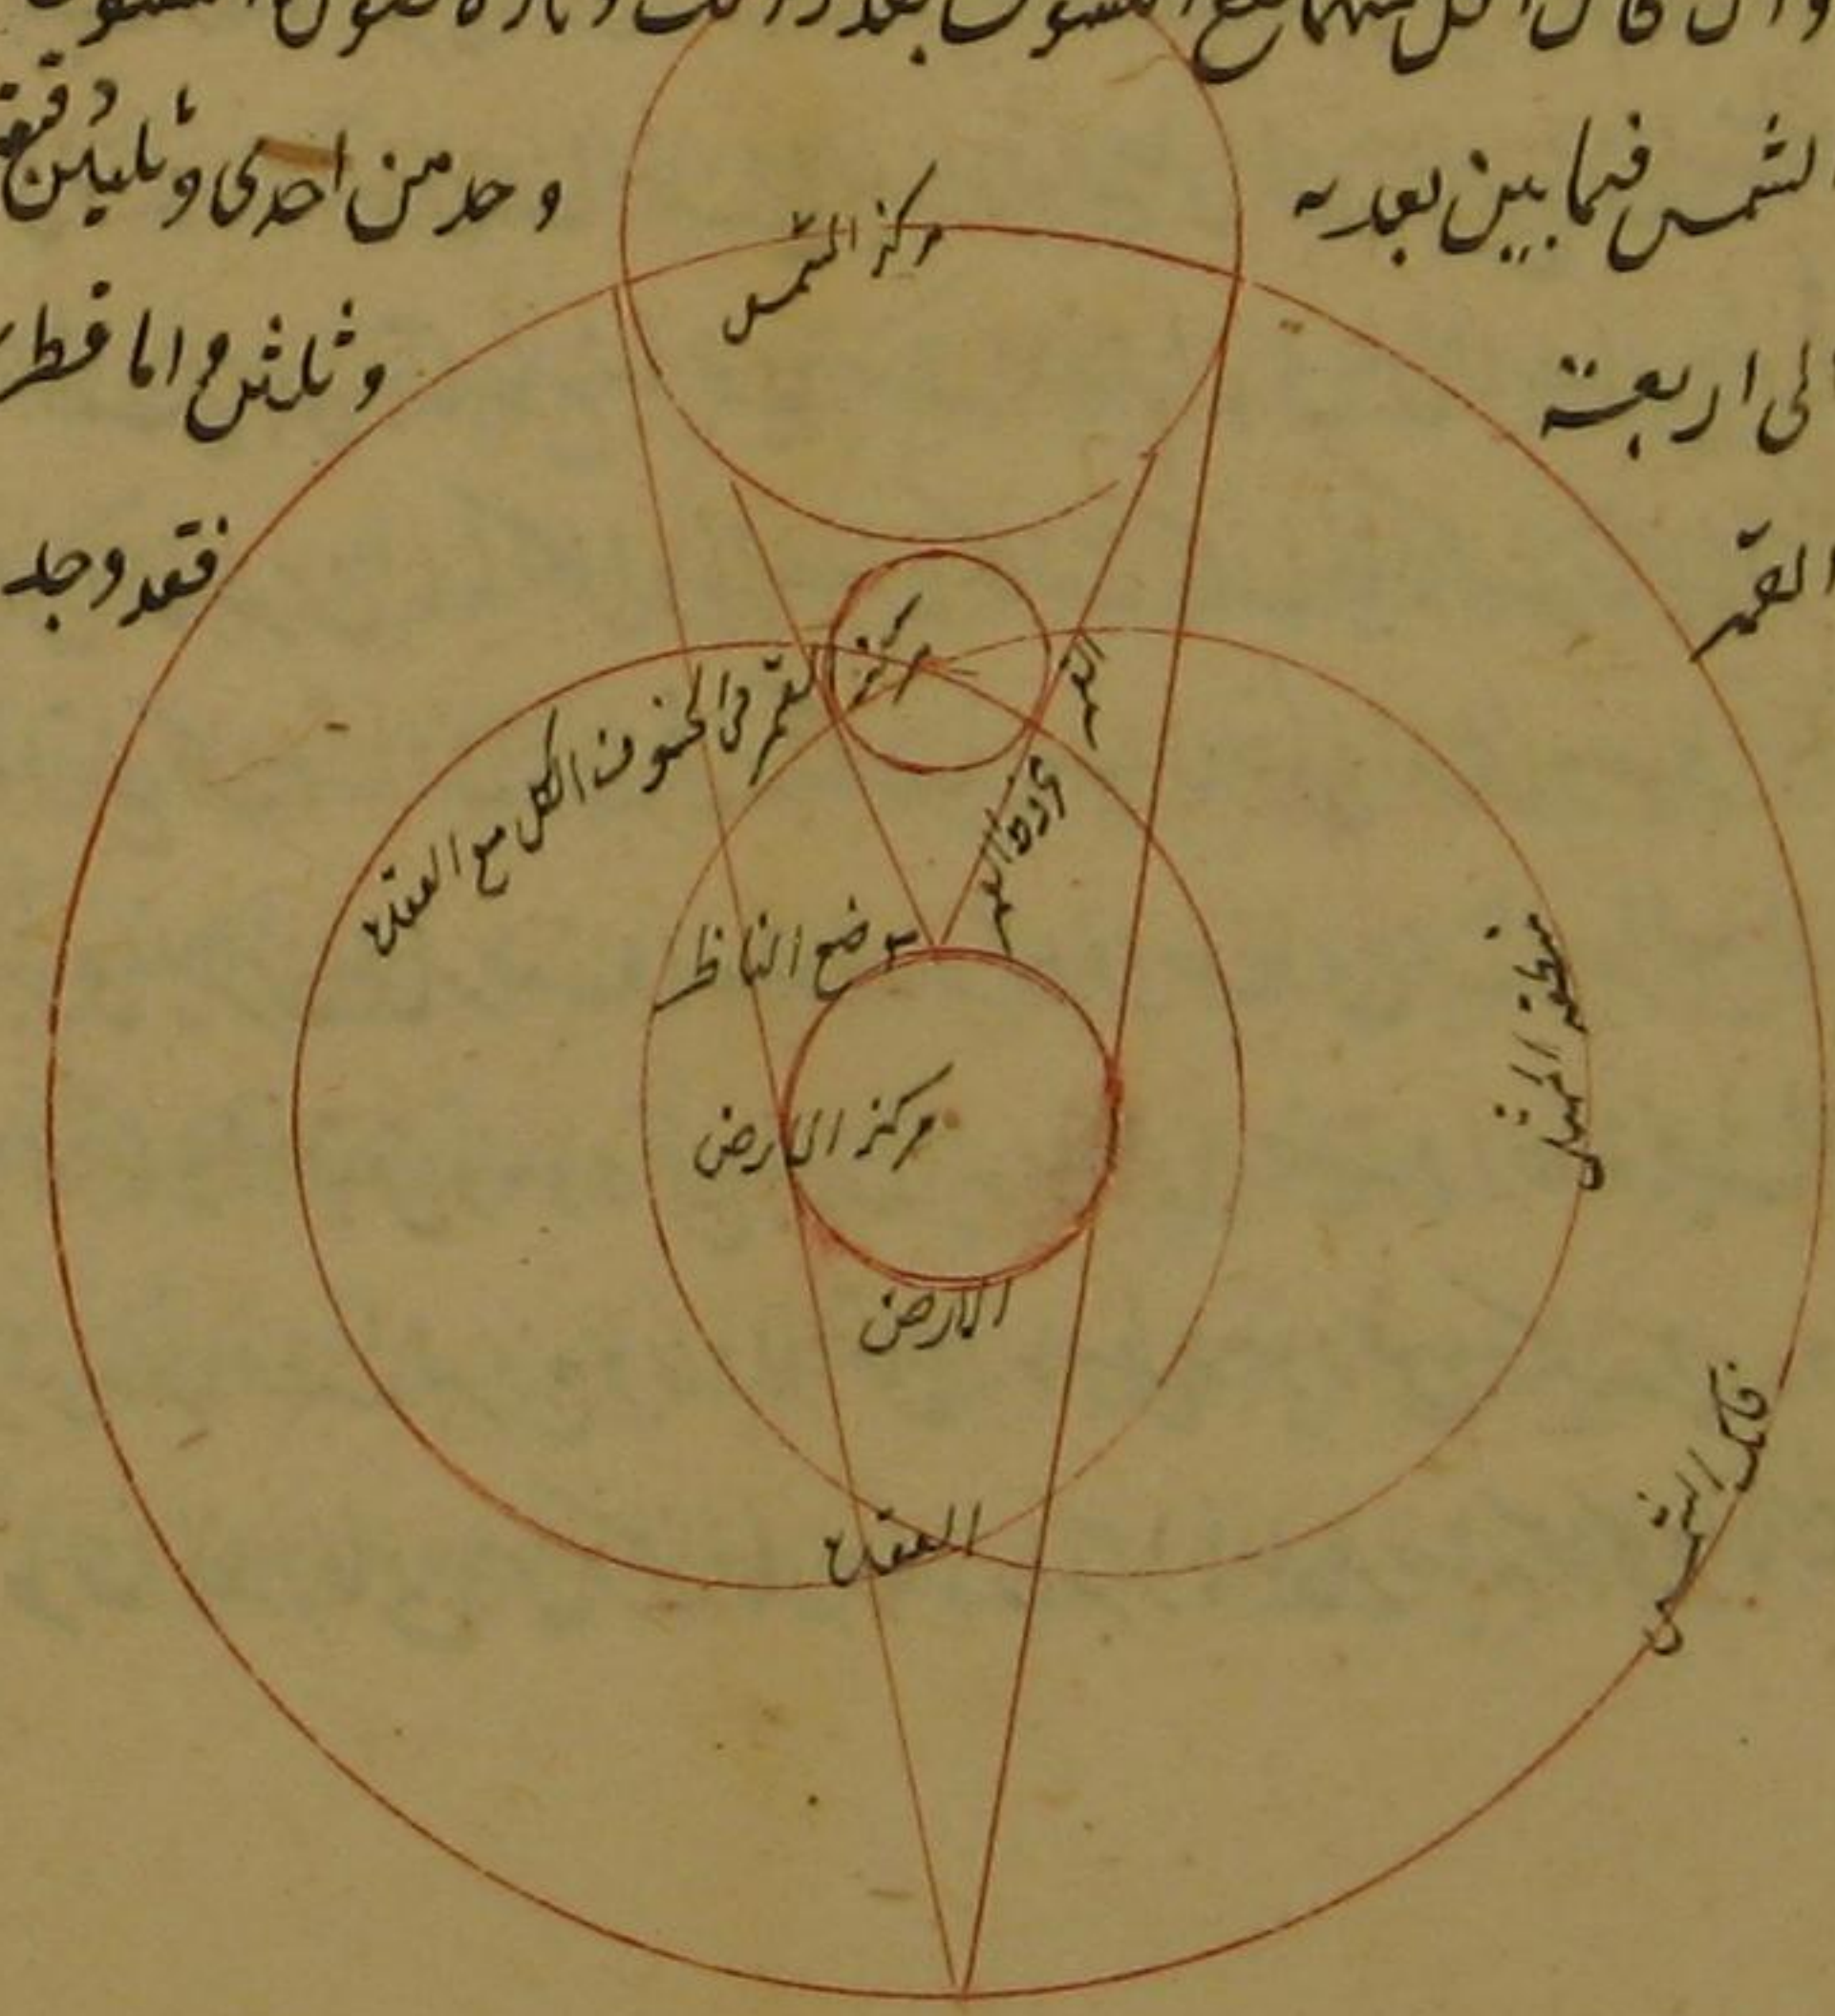 الشمس فيما بين بعديه وحد من احدى وثلثين دقيقة
الى اربعة وثلثين اما قطر
القمر فقد وجد
مركز الشمس
مركز القمر فى الخسوف الكلى مع العقدة
القمر
موضع الناظر
مركز الارض
الارض
العقدة
منطقة الممثل
فلك الشمس